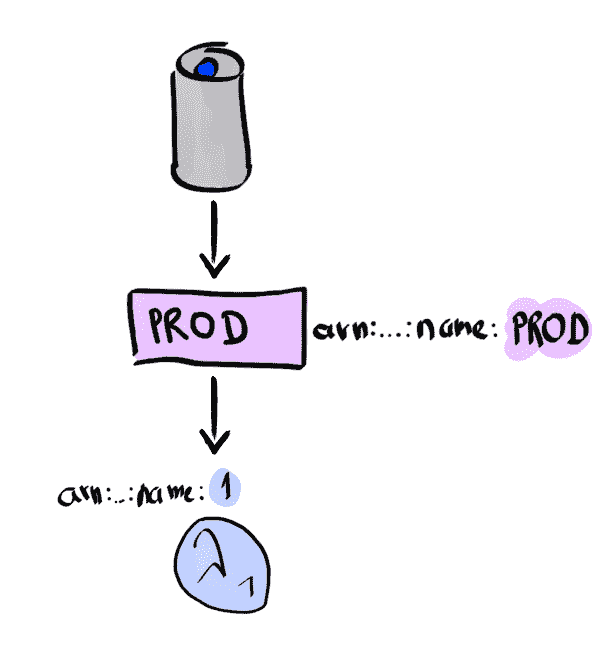 PROD
arn:...:name: PROD
arn:...:name: 1
λ 1